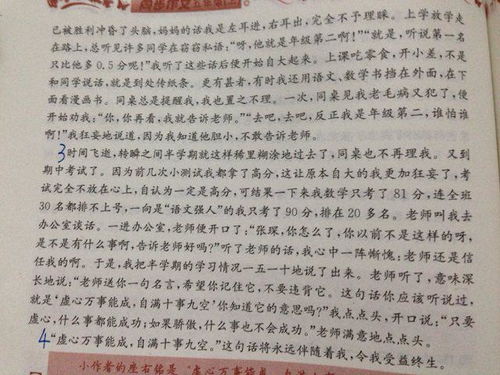 已被胜利冲昏了头脑,妈妈的话我是左耳进,右耳出,完全不予理睬。上学放学走
在路上,总听见许多同学在窃窃私语:“呀,他就是年级第二啊!”“就是,听说第一名
只比他多0.5分呢!”我听了这些话后便开始自大起来。上课吃零食,开小差,不是
和同学说话,就是到处传纸条。更有甚者,有时我还用语文、数学书挡在外面,在下
面看漫画书。同桌总是提醒我,我也置之不理。一次,同桌见我老毛病又犯了,便
开始劝我:“你,你再看,我就告诉老师。”“去吧,去吧,反正我是年级第二,谁怕谁
啊!”我狂妄地说道,因为我知道他胆小,不敢告诉老师。
3时间飞逝,转瞬之间半学期就这样稀里糊涂地过去了,同桌也不再理我。又到
期中考试了。因为前几次小测试我都拿了高分,这让原本自大的我更加狂妄了,考
试完全不放在心上,自认为一定是高分,可结果一下来我数学只考了81分,连全班
30名都排不上号,一向是“语文强人”的我只考了90分,排在20多名。老师叫我去
办公室谈话。一进办公室,老师便开口了:“张琛,你怎么了,你以前不是这样的呀,
是不是有什么事啊,告诉老师好吗?”听了老师的话,我心中一阵惭愧:老师还是信
任我的啊。于是,我把半学期的学习情况一五一十地说了出来。老师听了,意味深
长地说:“老师送你一句名言,希望你记住它,不要违背它。这句话你应该听说过,
就是‘虚心万事能成,自满十事九空’你知道它的意思吗?”我点点头,开口说:“只要
虚心,什么事都能成功;如果骄傲,什么事也不会成功。”老师满意地点点头。
4“虚心万事能成,自满十事九空。”这句话将永远伴随着我,令我受益终生。
小作者的座右铭是“虚心万事能成,自满十